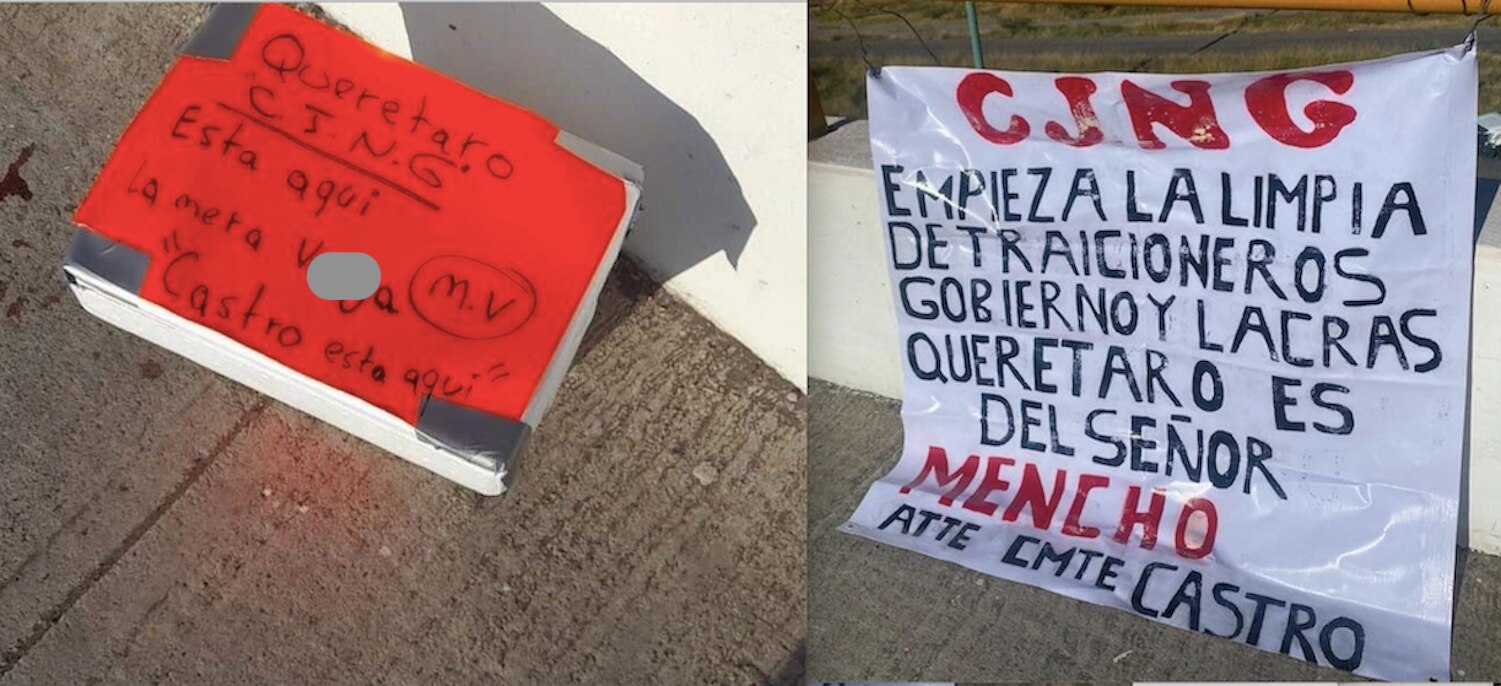 Queretaro
C.J.N.G.
Esta aqui
la mera V a M.V
"Castro esta aqui"
CJNG
EMPIEZA LA LIMPIA
DE TRAICIONEROS
GOBIERNO Y LACRAS
QUERETARO ES
DEL SEÑOR
MENCHO
ATTE CMTE CASTRO